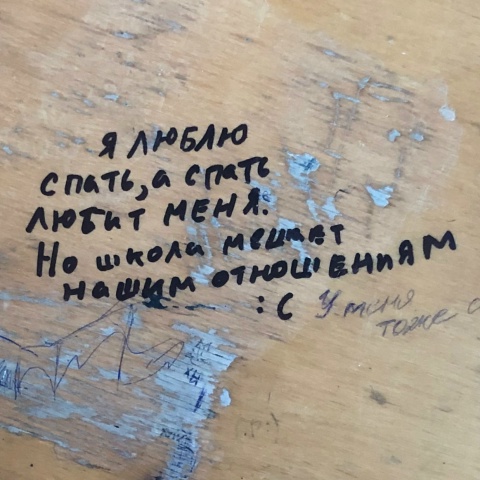 Я ЛЮБЛЮ
спать, а спать
любит меня.
Но школа мешает
нашим отношениям
:С
У меня
тоже